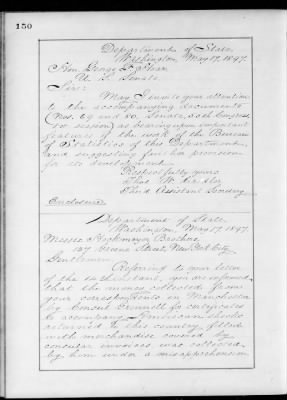 150
Department of State,
Washington, May 17, 1897.
Hon. George
U. S. Senate.
Sir:
May I invite your attention
to the accompanying documents
(Nos. 69 and 80, Senate, 50th Congress,
session) as bearing upon important
features of the work of the Bureau
of Statistics of this Department,
and suggesting further provision
for its development.
Respectfully yours
Thos. W. Cridler
Third Assistant Secretary.
Enclosure
Department of State
Washington, May 17, 1897.
Messrs Brothers,
127 Greene Street, New York City.
Gentlemen:
Referring to your letter
of the instant, you are informed
that the money collected from
your correspondents in Manchester
by Consul Grinnell for certificate
to accompany American
returned to this country filled
with merchandise covered by
consular invoices was collected
by him under a misapprehension